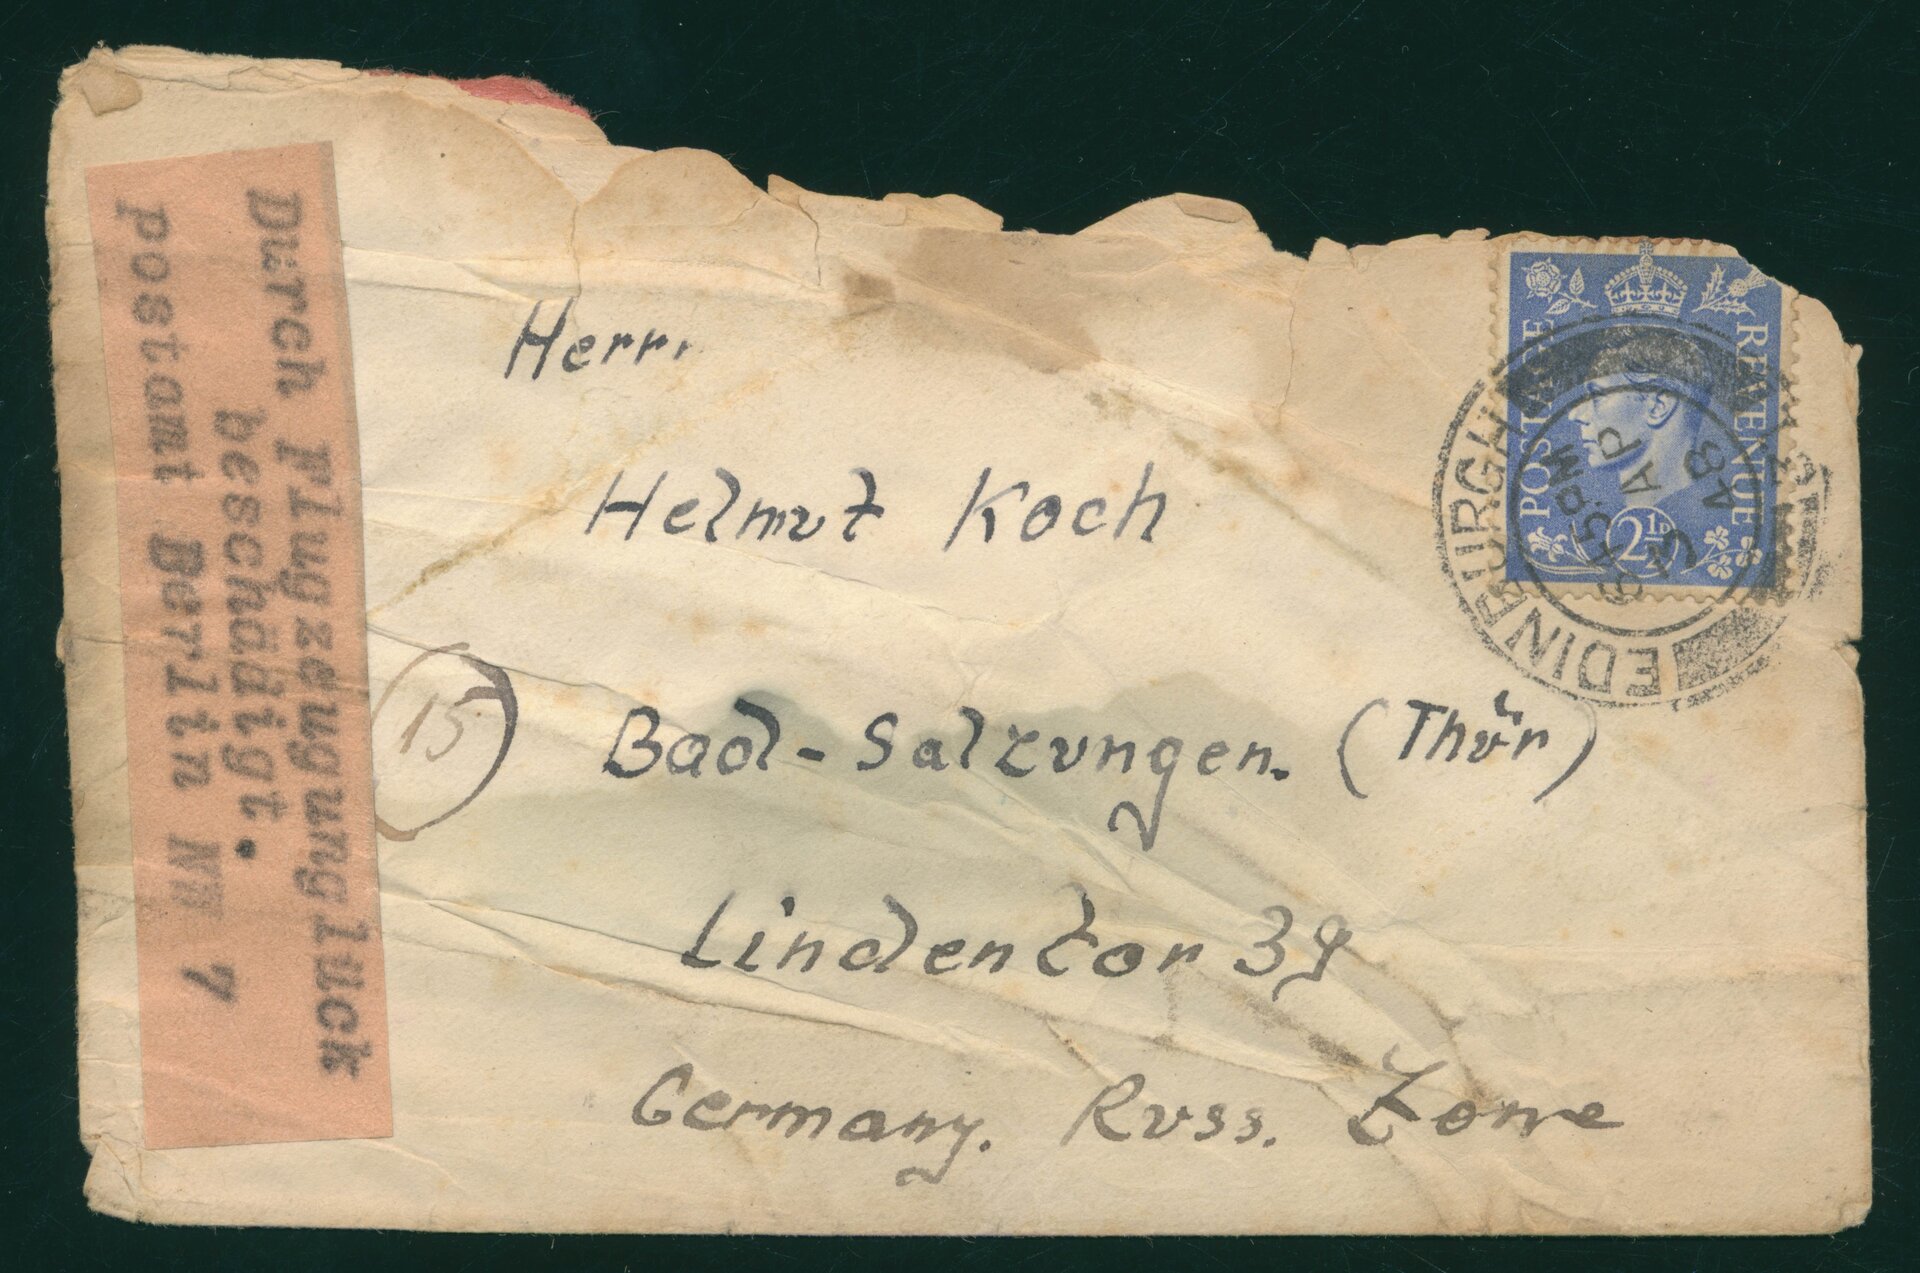 Durch Flugzeugunglück
beschädigt.
Postamt Berlin NW 7
Herrn
Helmut Koch
(15) Bad-Salzungen. (Thür)
Lindentor 39
Germany. Russ. Zone
POSTAGE
REVENUE
2½D
EDINBURGH
6 15 PM
5 AP
48